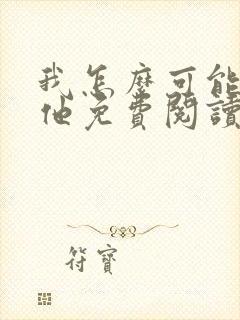 我怎麼可能
他免費閱讀
符寶